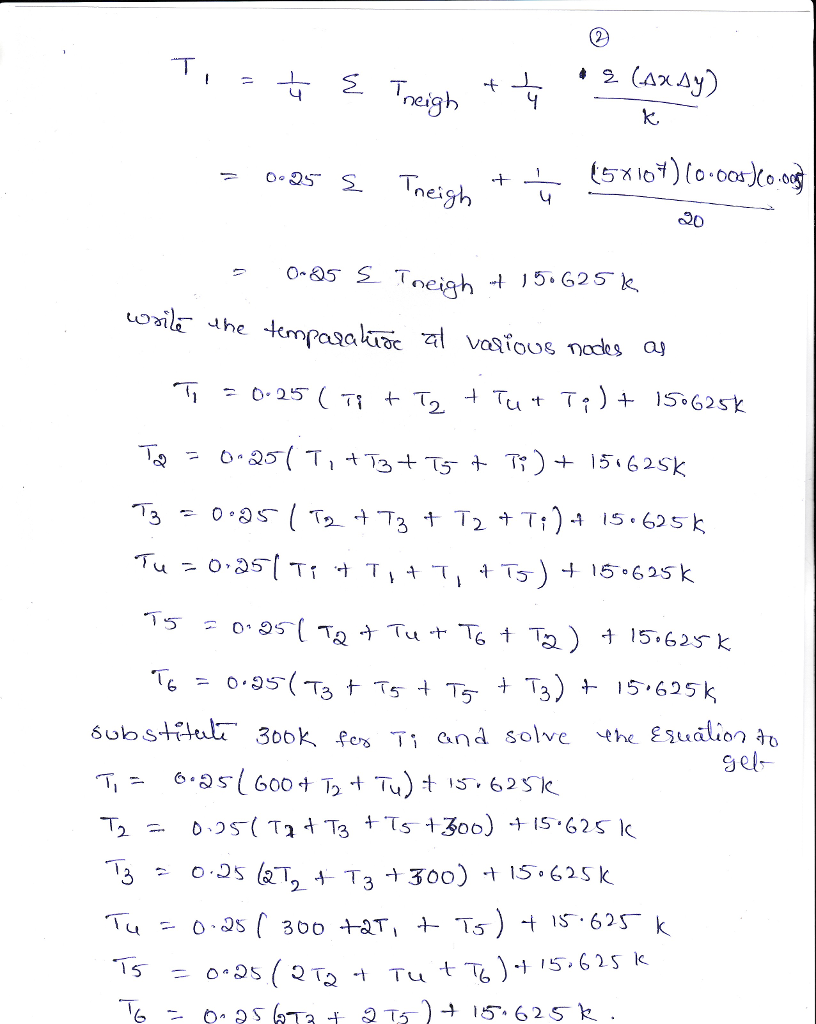 ②
T₁ = 1/4 Σ Tneigh + 1/4 · q (Δx Δy) / k
= 0.25 Σ Tneigh + 1/4 (5×10⁷)(0.005)(0.005) / 20
= 0.25 Σ Tneigh + 15.625 k
write the temparature at various nodes as
T₁ = 0.25 ( Ti + T₂ + T₄ + Ti ) + 15.625k
T₂ = 0.25( T₁ + T₃ + T₅ + Ti ) + 15.625k
T₃ = 0.25 ( T₂ + T₃ + T₂ + Ti ) + 15.625k
T₄ = 0.25( Ti + T₁ + T₁ + T₅ ) + 15.625k
T₅ = 0.25( T₂ + T₄ + T₆ + T₂ ) + 15.625k
T₆ = 0.25( T₃ + T₅ + T₅ + T₃ ) + 15.625k
substitute 300k for Ti and solve the Equation to
get
T₁ = 0.25( 600 + T₂ + T₄ ) + 15.625k
T₂ = 0.25( T₁ + T₃ + T₅ + 300 ) + 15.625 k
T₃ = 0.25 (2T₂ + T₃ + 300) + 15.625k
T₄ = 0.25 ( 300 + 2T₁ + T₅ ) + 15.625 k
T₅ = 0.25 ( 2T₂ + T₄ + T₆ ) + 15.625 k
T₆ = 0.25 (2T₃ + 2T₅ ) + 15.625 k .